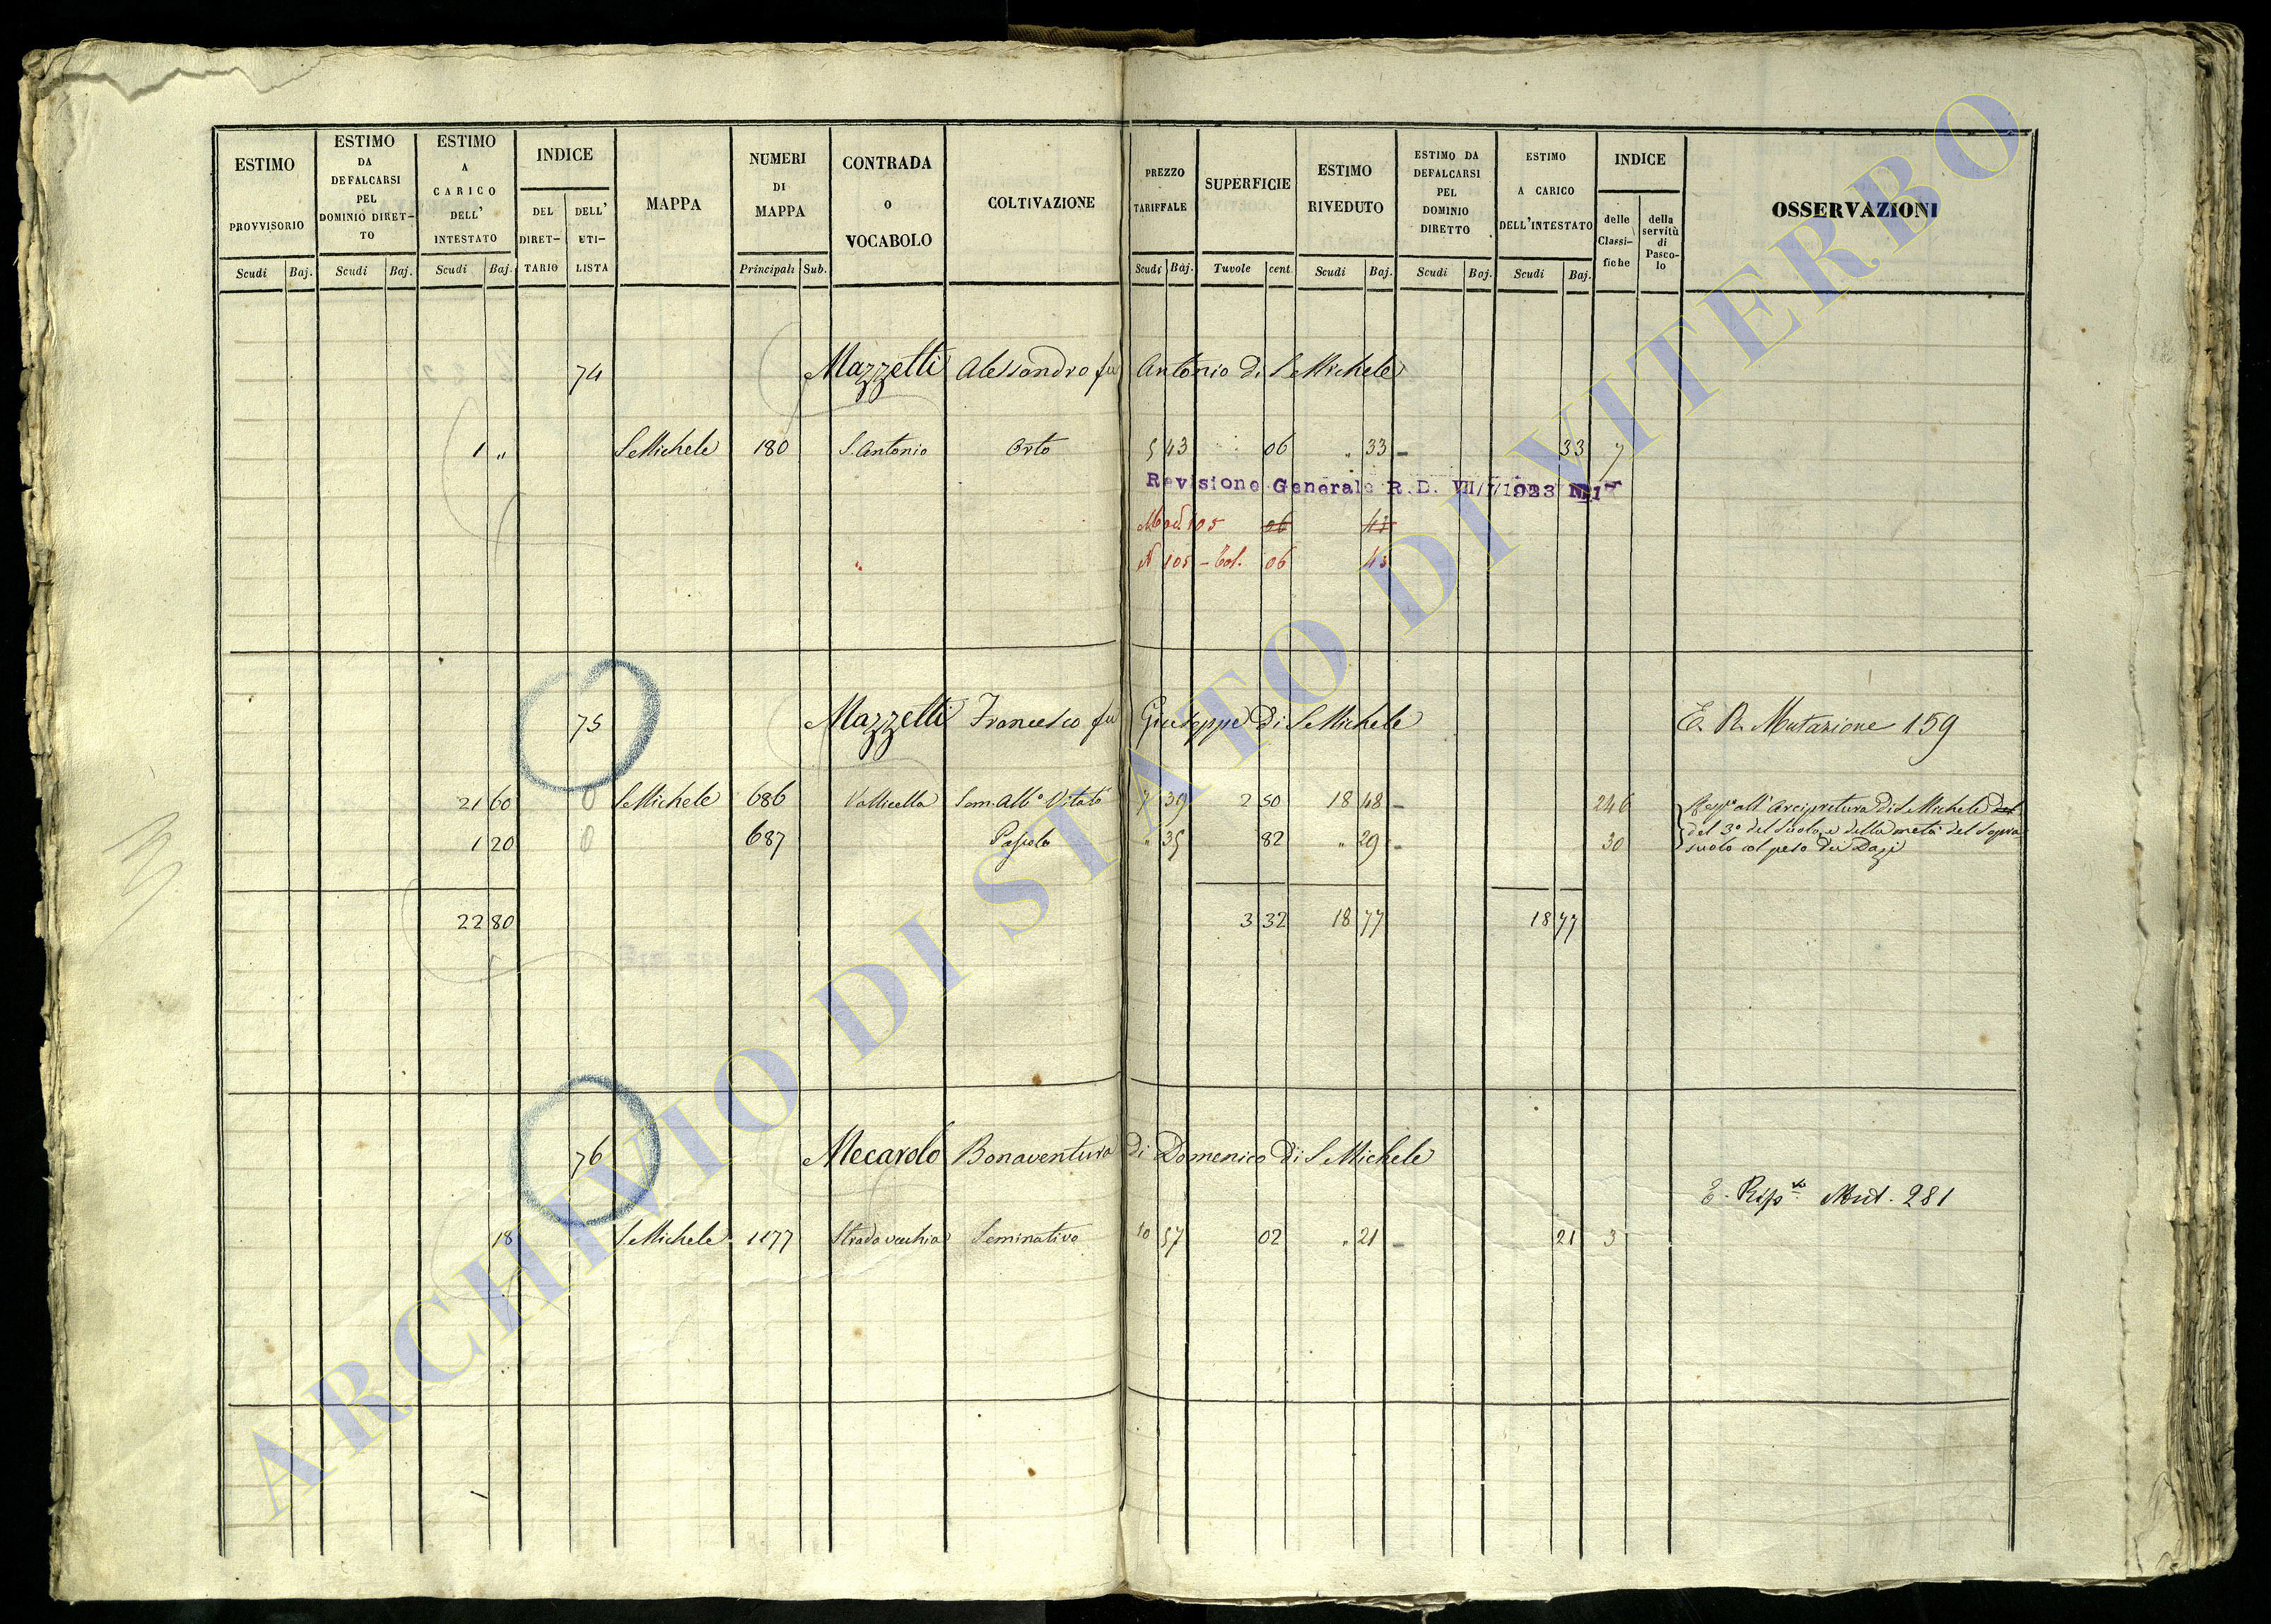 ESTIMO PROVVISORIO Scudi Baj.
ESTIMO DA DEFALCARSI PEL DOMINIO DIRET-TO Scudi Baj.
ESTIMO A CARICO DELL' INTESTATO Scudi Baj.
INDICE DEL DIRET-TARIO DELL' UTI-LISTA
MAPPA
NUMERI DI MAPPA Principali Sub.
CONTRADA O VOCABOLO
COLTIVAZIONE
PREZZO TARIFFALE Scudi Baj.
SUPERFICIE Tavole cent.
ESTIMO RIVEDUTO Scudi Baj.
ESTIMO DA DEFALCARSI PEL DOMINIO DIRETTO Scudi Baj.
ESTIMO A CARICO DELL'INTESTATO Scudi Baj.
INDICE delle Classi-fiche della servitù di Pasco-lo
OSSERVAZIONI
74 Mazzetti Alessandro fu Antonio di S. Michele
1 " S. Michele 180 S. Antonio Orto 5 43 06 " 33 - 33 7
Revisione Generale R.D. VII/7/1923 N 17
Mod. 105 06
N 105 - Col. 06 45
75 Mazzetti Francesco fu Giuseppe di S. Michele E. R. Mutazione 159
21 60 0 S. Michele 686 Vallicella Sem. Alb.o Vitato 7 39 2 50 18 48 - 246 all'Arcipretura di S. Michele
1 20 0 687 Pascolo " 35 82 " 29 - 30 del 3° del suolo e della metà del sopra
suolo col peso dei Dazi
22 80 3 32 18 77 18 77
76 Mecarolo Bonaventura di Domenico di S. Michele
E. Risp. Mut. 281
18 S. Michele 1177 Strada vecchia Seminativo 10 57 02 " 21 - 21 3
ARCHIVIO DI STATO DI VITERBO